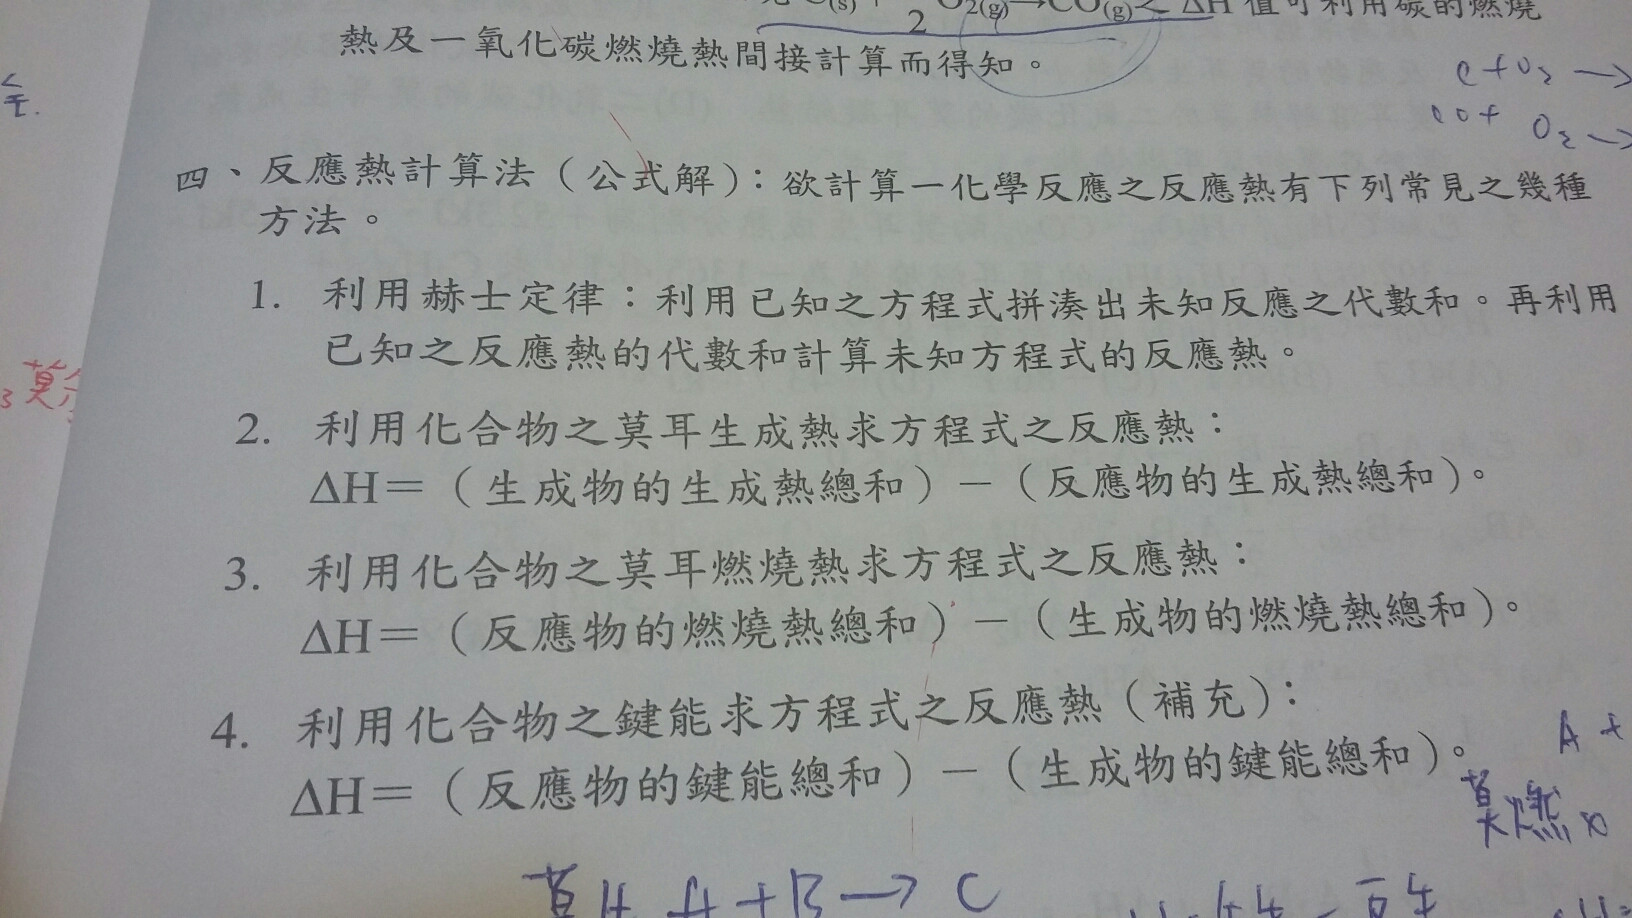 C(s)+ 1/2 O2(g)→CO(g)之 ΔH 值可利用碳的燃燒
熱及一氧化碳燃燒熱間接計算而得知。
C+O2 →
CO+ O2 →
四、反應熱計算法(公式解):欲計算一化學反應之反應熱有下列常見之幾種
方法。
1. 利用赫士定律:利用已知之方程式拼湊出未知反應之代數和。再利用
已知之反應熱的代數和計算未知方程式的反應熱。
2. 利用化合物之莫耳生成熱求方程式之反應熱:
ΔH=(生成物的生成熱總和)-(反應物的生成熱總和)。
3. 利用化合物之莫耳燃燒熱求方程式之反應熱:
ΔH=(反應物的燃燒熱總和)-(生成物的燃燒熱總和)。
4. 利用化合物之鍵能求方程式之反應熱(補充):
ΔH=(反應物的鍵能總和)-(生成物的鍵能總和)。
A +
莫燃
A+B → C